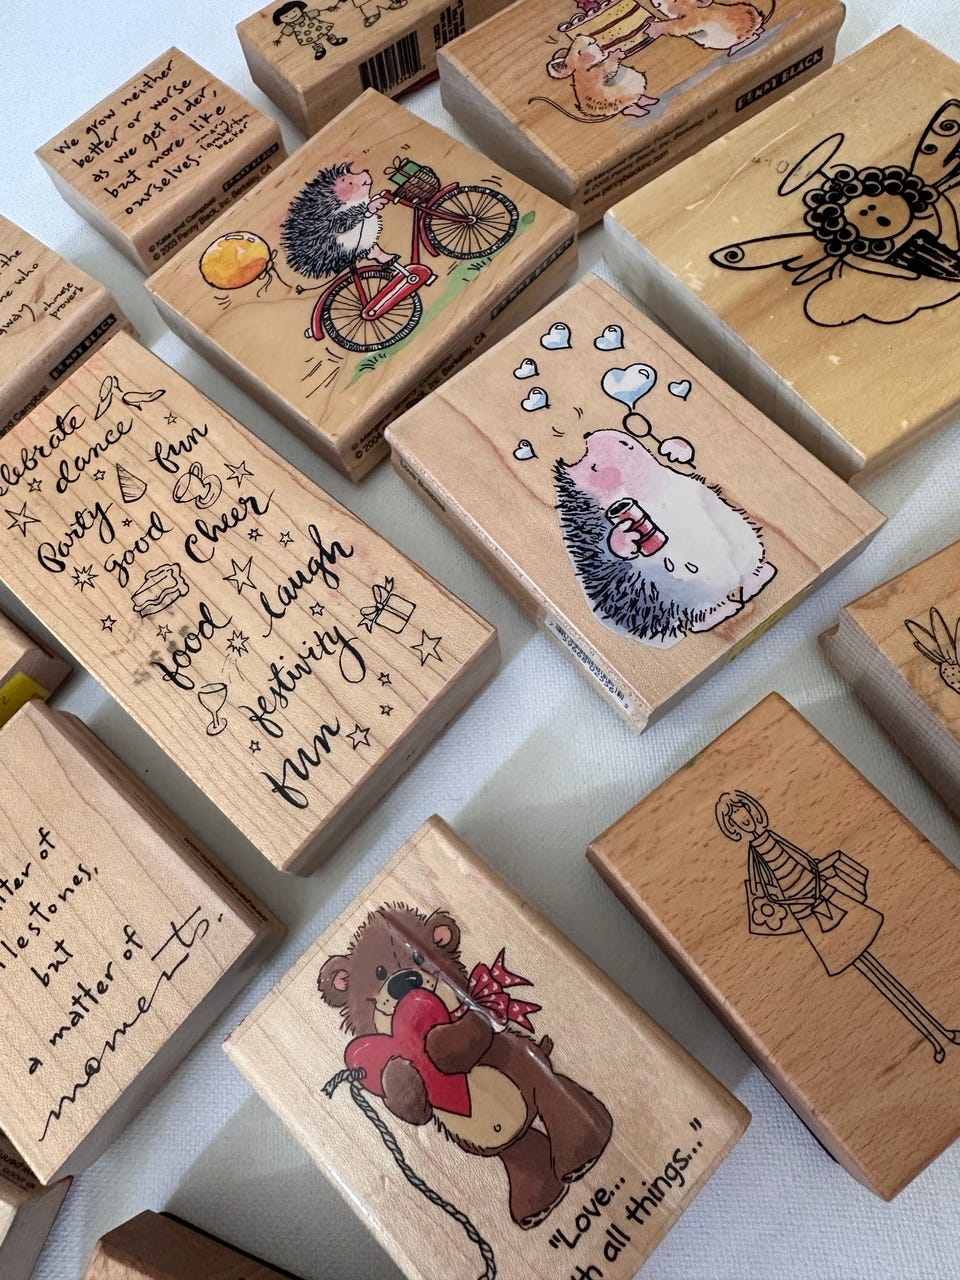 We grow neither
better or worse
as we get older,
but more like
ourselves.
mary
lamberton
becker
PENNY BLACK
© 2003 Penny Black, Inc. Berkeley, CA
PENNY BLACK
www.pennyblackinc.com
the
who
away
chinese
proverb
PENNY BLACK
Campbell
PENNY BLACK
Inc. Berkeley, CA
celebrate
dance
fun
Party
good
Cheer
food
laugh
festivity
fun
but
a matter of
moments.
"Love...
all things..."